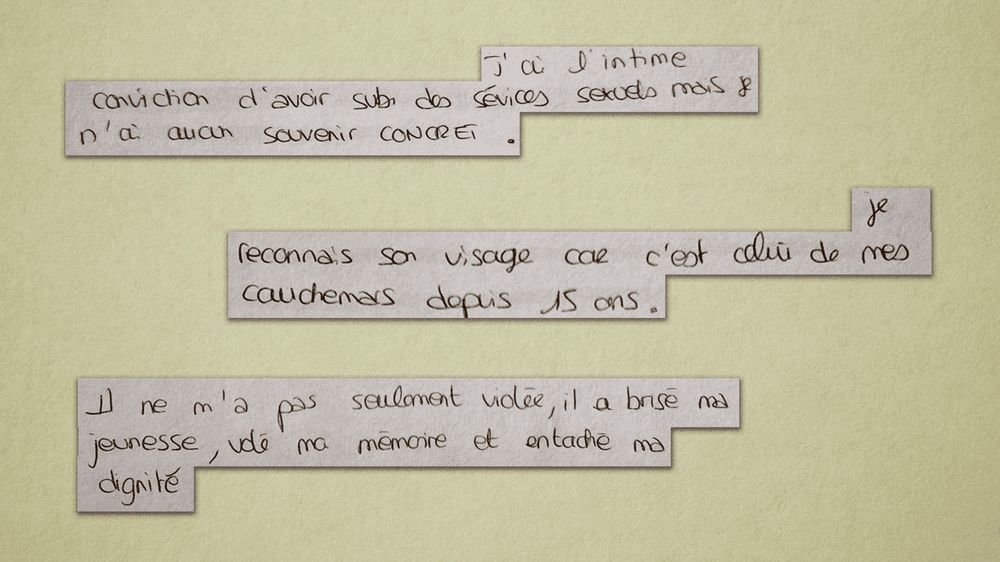 J'ai l'intime
conviction d'avoir subi des sévices sexuels mais je
n'ai aucun souvenir CONCRET .
je
reconnais son visage car c'est celui de mes
cauchemars depuis 15 ans .
Il ne m'a pas seulement violée, il a brisé ma
jeunesse, volé ma mémoire et entaché ma
dignité